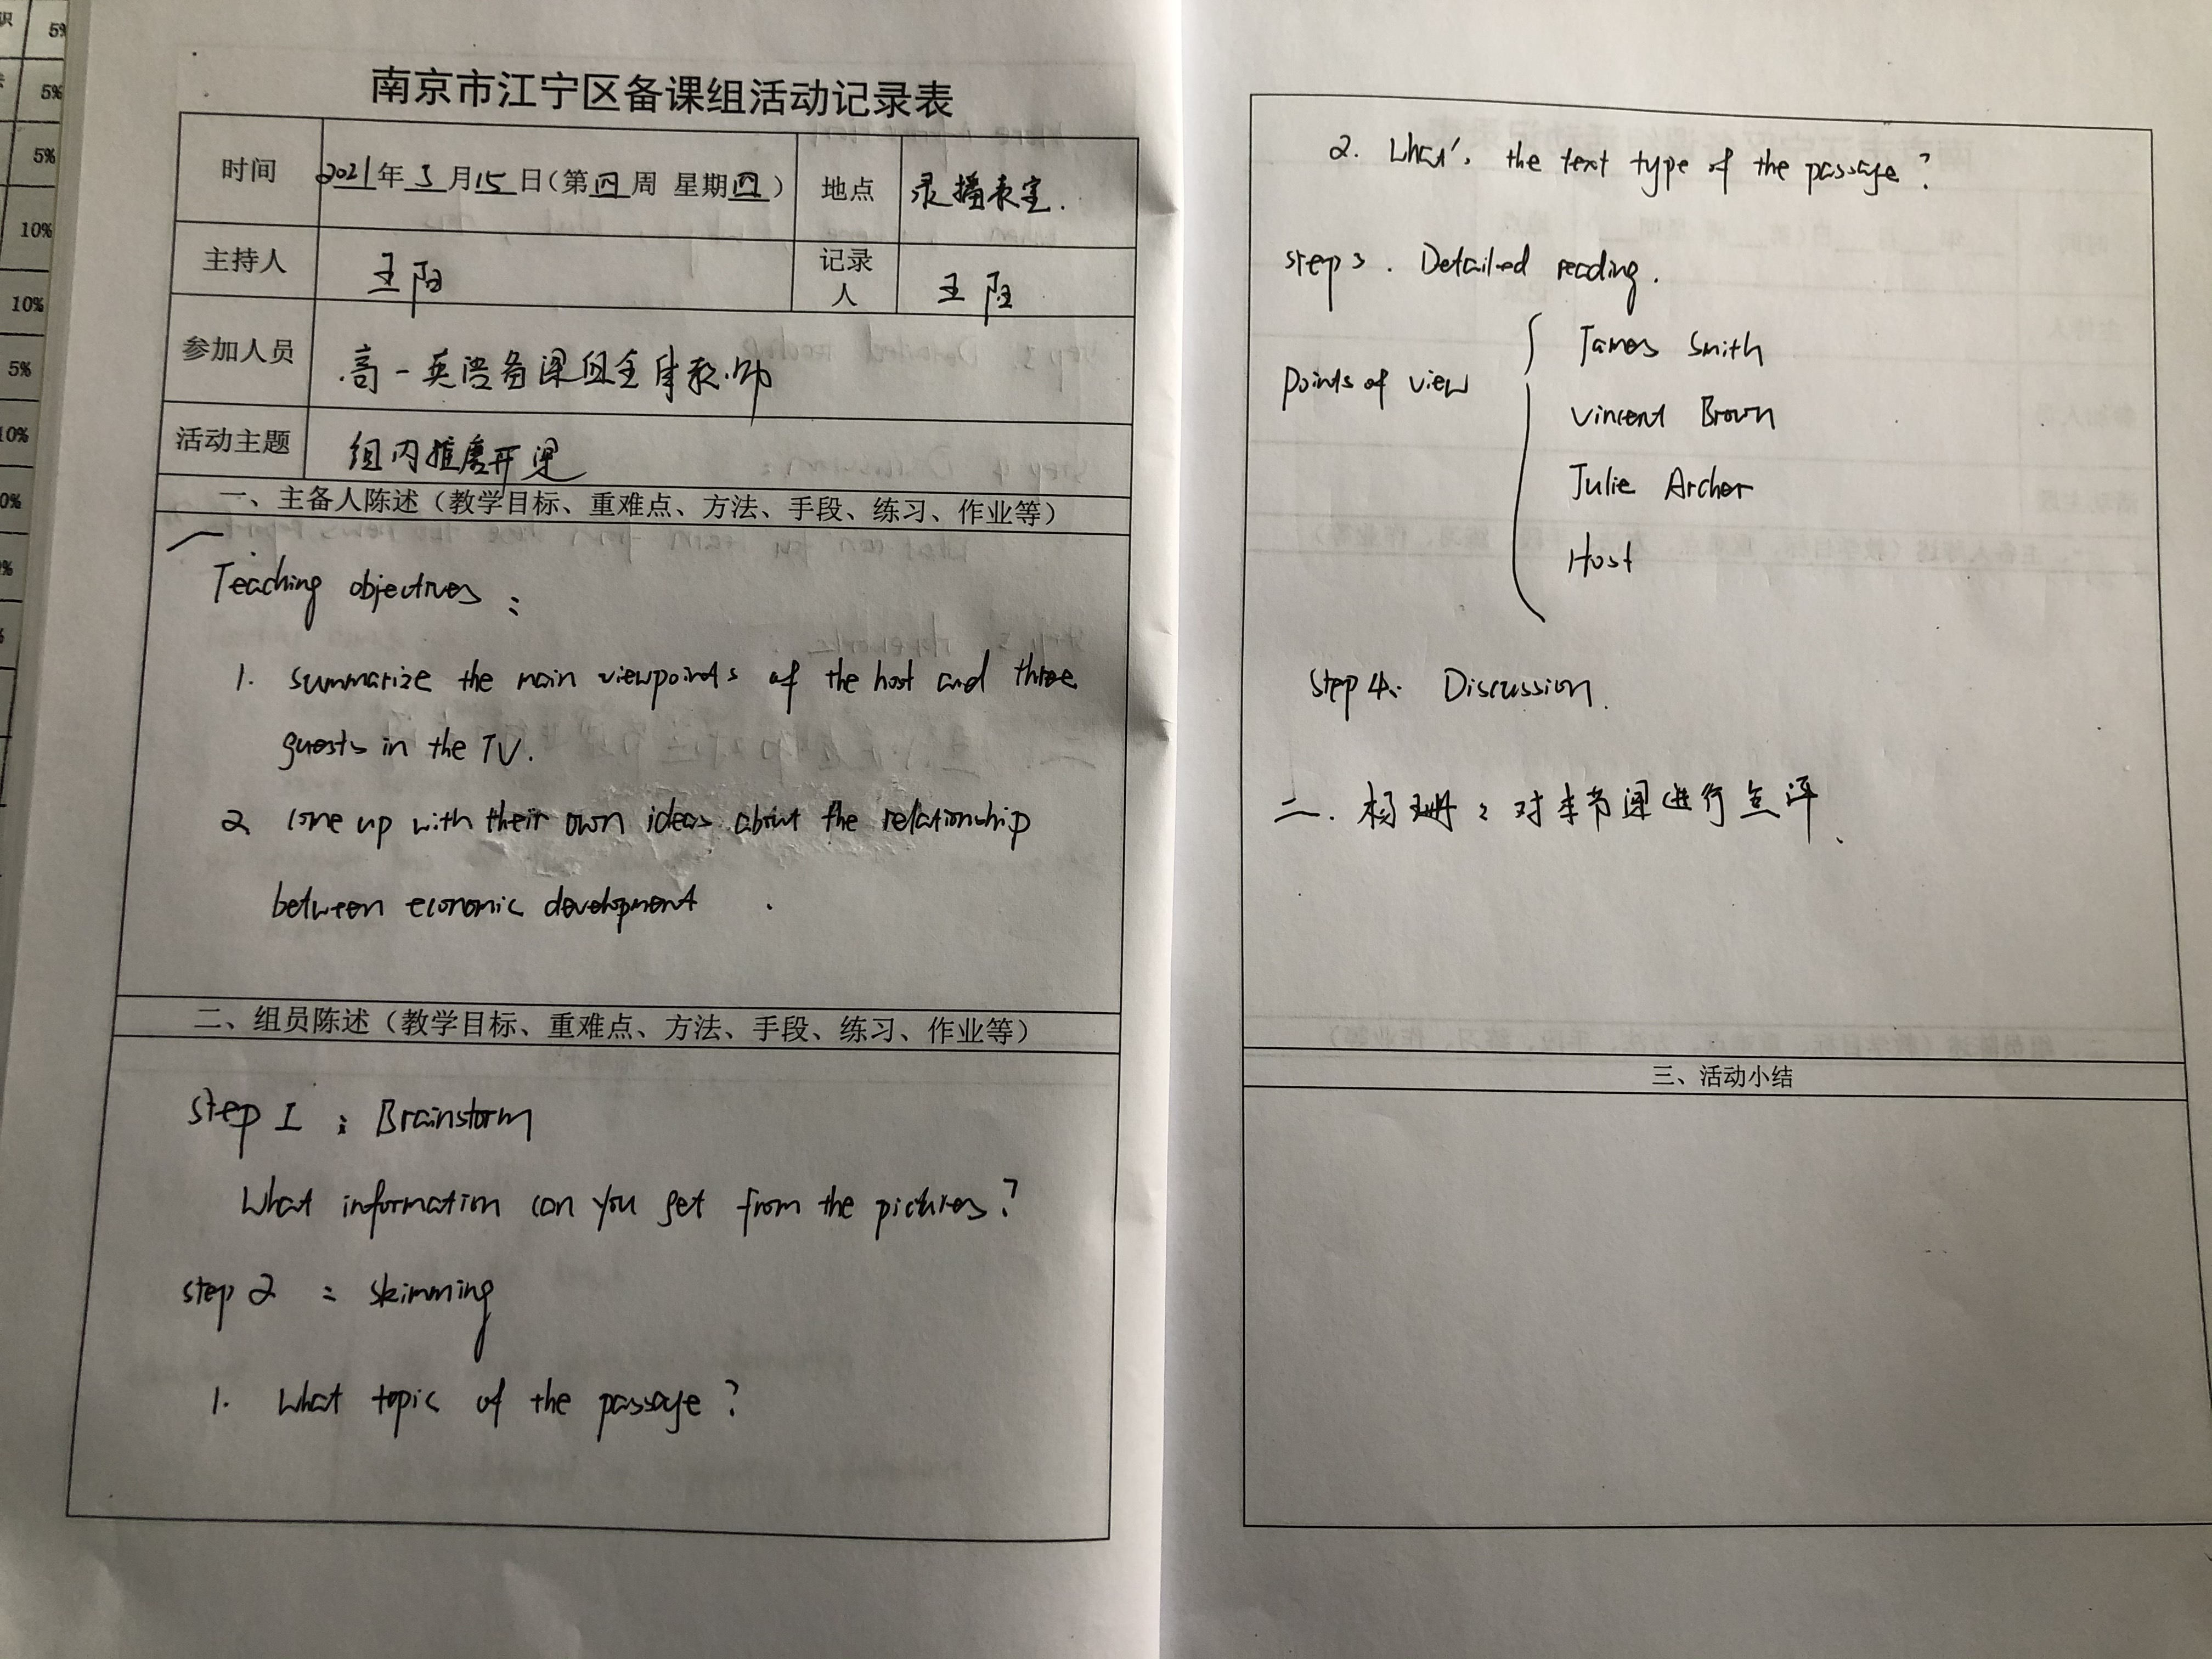 南京市江宁区备课组活动记录表
时间 2021年3月15日(第四周 星期四) 地点 录播教室.
主持人 王阳 记录人 王阳
参加人员 高一英语备课组全体教师
活动主题 组内推磨开课
一、主备人陈述（教学目标、重难点、方法、手段、练习、作业等）
一
Teaching objectives :
1. summarize the main viewpoints of the host and three
guests in the TV.
2 come up with their own ideas about the relationship
between economic development .
二、组员陈述（教学目标、重难点、方法、手段、练习、作业等）
step I : Brainstorm
What information can you get from the pictures?
step 2 : skimming
1. What topic of the passage ?
2. What's the text type of the passage ?
step 3 . Detailed reading .
points of view
James Smith
Vincent Brown
Julie Archer
Host
step 4. Discussion.
二. 杨珊 : 对本节课进行点评.
三、活动小结
5%
5%
5%
10%
10%
5%
10%
0%
%